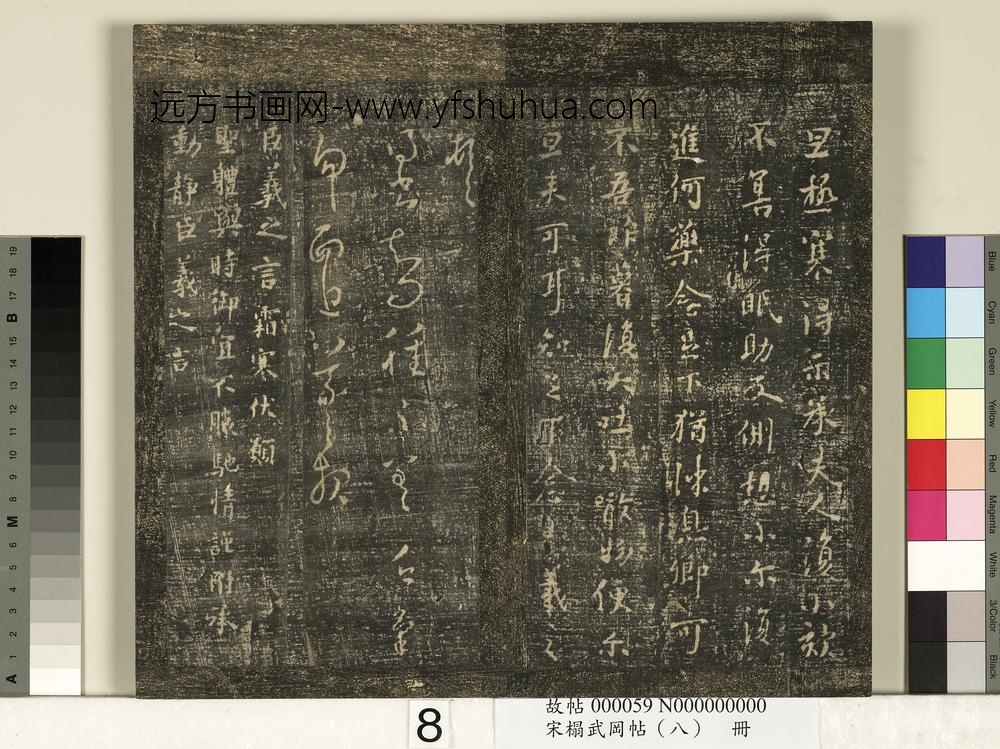 旦極寒得示承夫人復小欬
不善得眠助反側想小爾復
進何藥念足下猶悚息卿可
不吾昨暮復大吐小啖物便爾
旦來可耳知之問 羲之
頓
臣羲之言霜寒伏願
聖體與時御宜不勝馳情謹附承
動靜臣羲之言
远方书画网-www.yfshuhua.com
8
故帖 000059 N000000000
宋榻武岡帖（八） 冊
A 1 2 3 4 5 6 M 8 9 10 11 12 13 14 15 B 17 18 19
Blue
Cyan
Green
Yellow
Red
Magenta
White
3/Color
Black